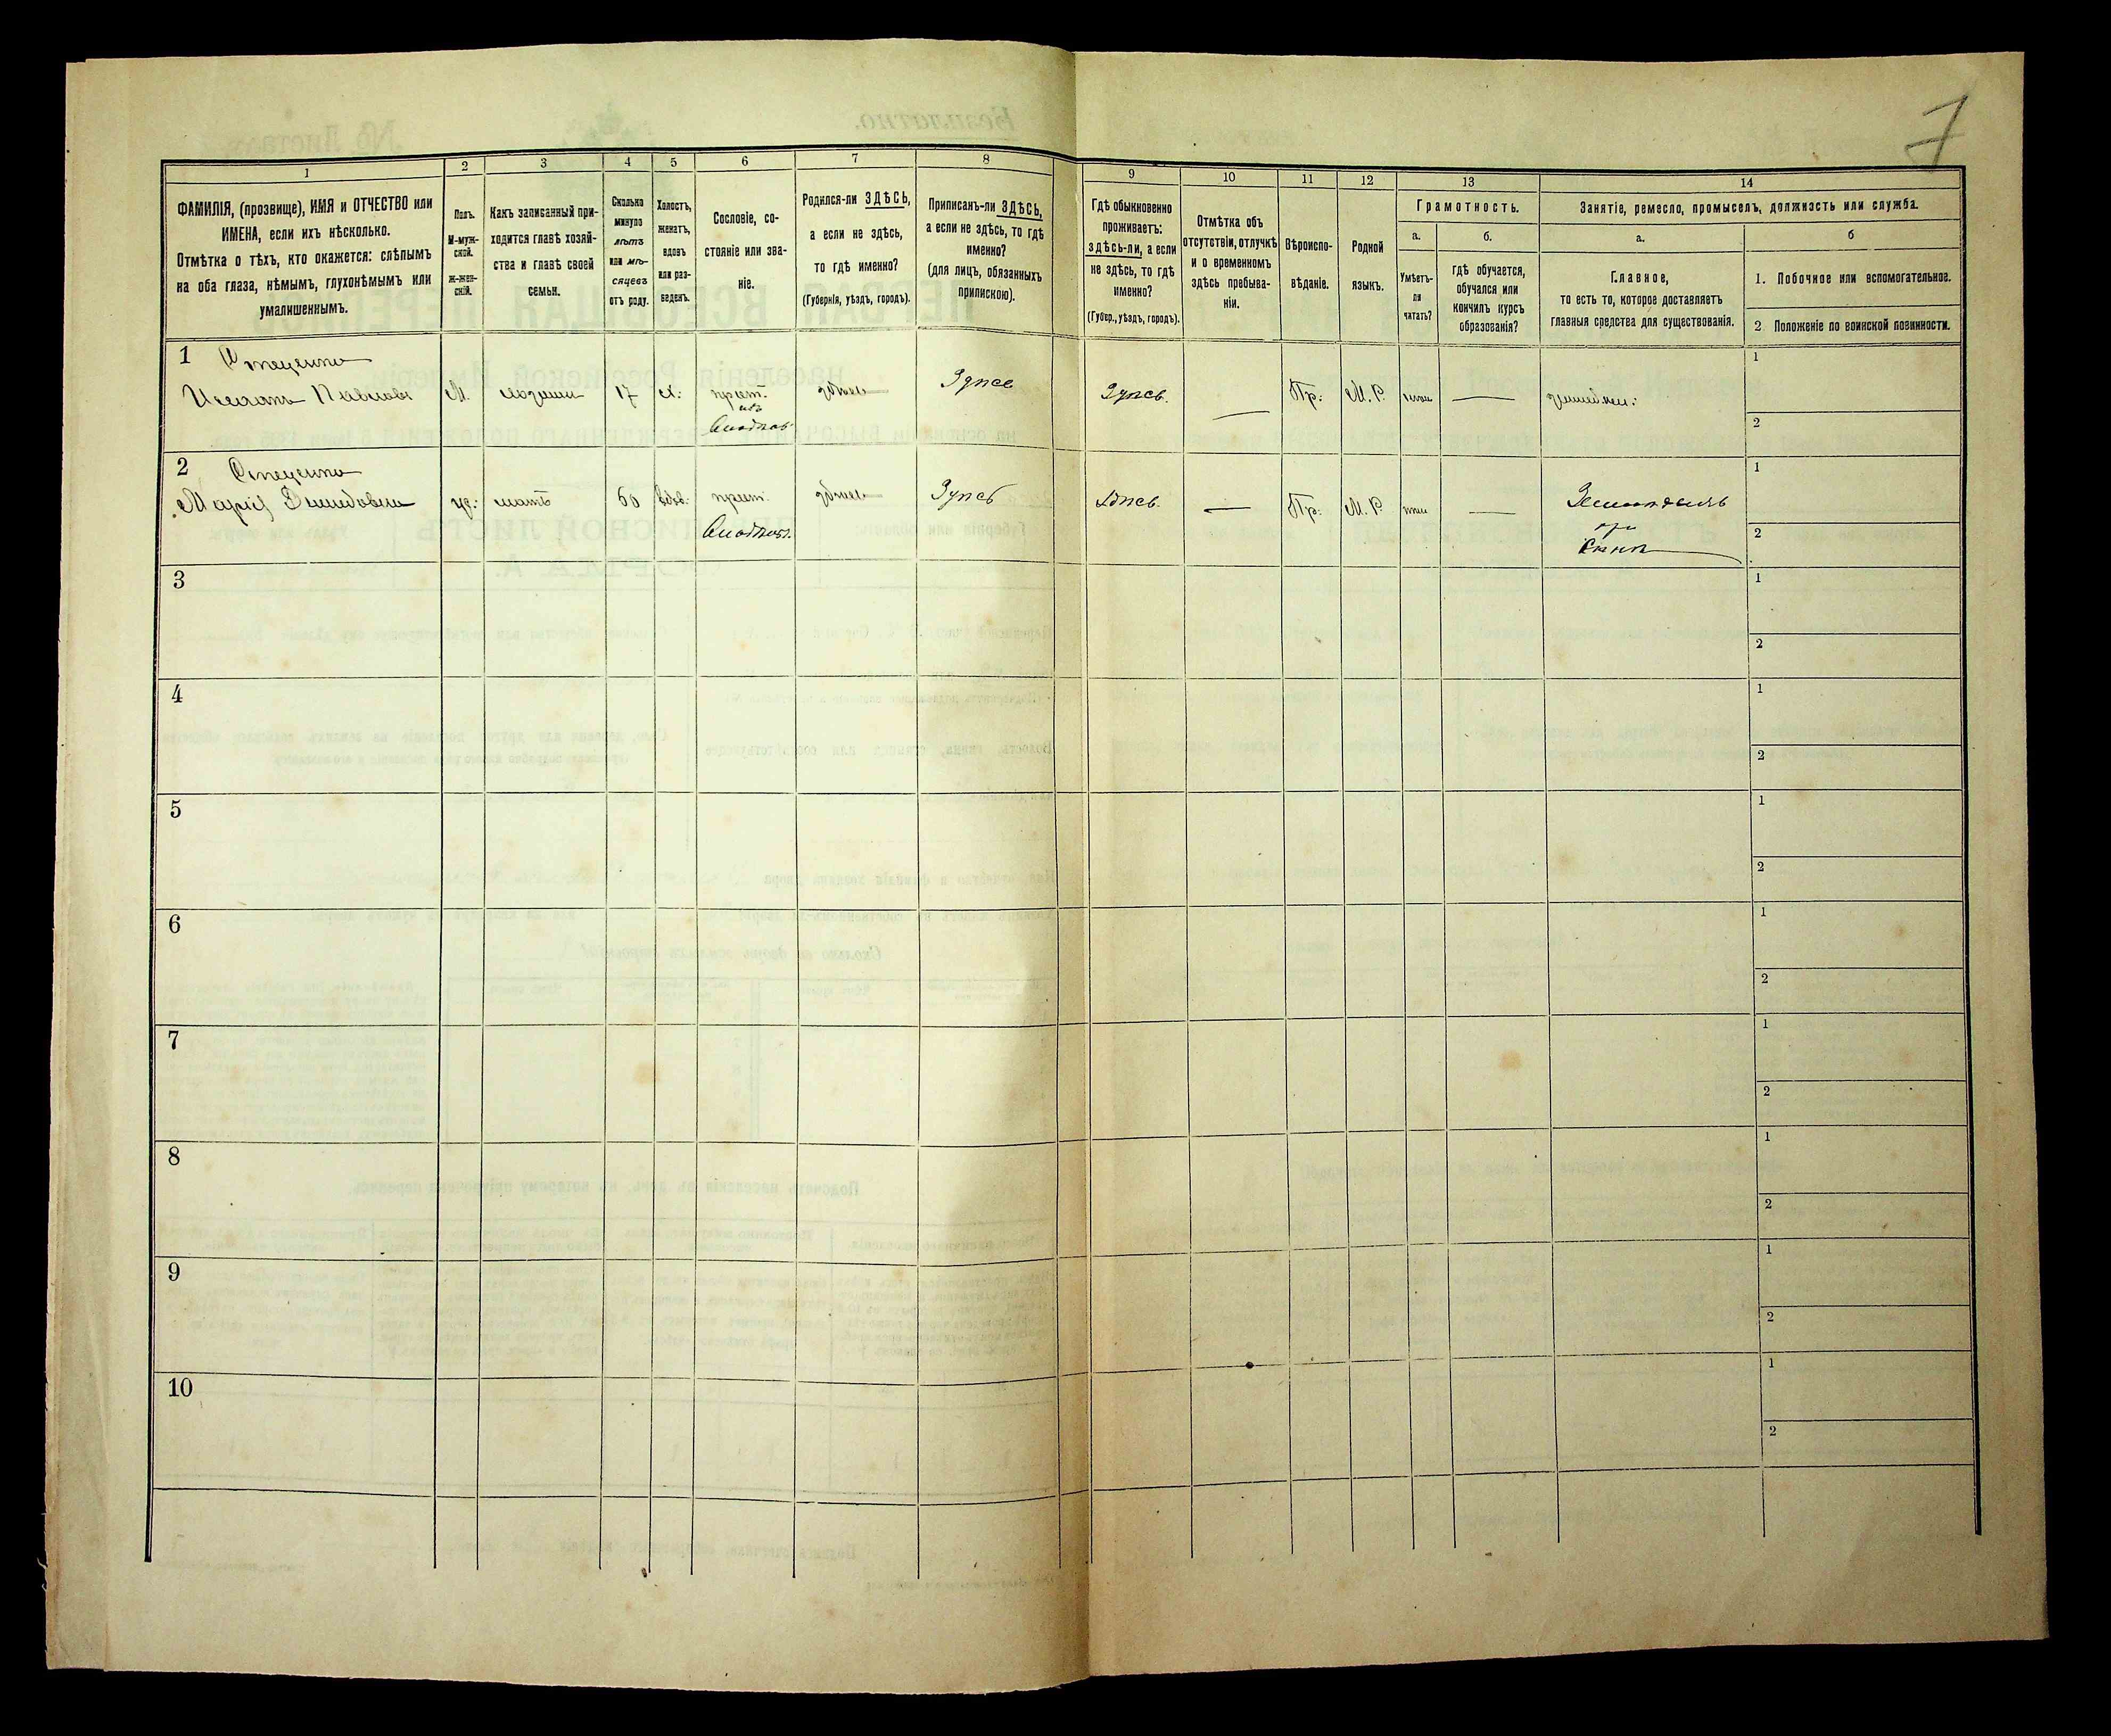 7
1
2
3
4
5
6
7
8
9
10
11
12
13
14
ФАМИЛІЯ, (прозвище), ИМЯ и ОТЧЕСТВО или
ИМЕНА, если ихъ нѣсколько.
Отмѣтка о тѣхъ, кто окажется: слѣпымъ
на оба глаза, нѣмымъ, глухонѣмымъ или
умалишеннымъ.
Полъ.
М-муж-
ской.
ж-жен-
скій.
Какъ записанный при-
ходится главѣ хозяй-
ства и главѣ своей
семьи.
Сколько
минуло
лѣтъ
или мѣ-
сяцевъ
отъ роду.
Холостъ,
женатъ,
вдовъ
или раз-
веденъ.
Сословіе, со-
стояніе или зва-
ніе.
Родился-ли ЗДѢСЬ,
а если не здѣсь,
то гдѣ именно?
(Губернія, уѣздъ, городъ).
Приписанъ-ли ЗДѢСЬ,
а если не здѣсь, то гдѣ
именно?
(для лицъ, обязанныхъ
припискою).
Гдѣ обыкновенно
проживаетъ:
здѣсь-ли, а если
не здѣсь, то гдѣ
именно?
(Губер., уѣздъ, городъ).
Отмѣтка объ
отсутствіи, отлучкѣ
и о временномъ
здѣсь пребыва-
ніи.
Вѣроиспо-
вѣданіе.
Родной
языкъ.
Грамотность.
а.
Умѣетъ-
ли
читать?
б.
гдѣ обучается,
обучался или
кончилъ курсъ
образованія?
Занятіе, ремесло, промыселъ, должность или служба.
а.
Главное,
то есть то, которое доставляетъ
главныя средства для существованія.
б
1. Побочное или вспомогательное.
2. Положеніе по воинской повинности.
1 Стеценко
Павловъ М. 17 х. здѣсь Здѣсь Здѣсь. — Пр: М. Р. —
1
2
2 Стеценко
Марія мать 60 вдов. здѣсь Здѣсь Здѣсь. — Пр: М. Р —
при
сынѣ
1
2
3
1
2
4
1
2
5
1
2
6
1
2
7
1
2
8
1
2
9
1
2
10
1
2